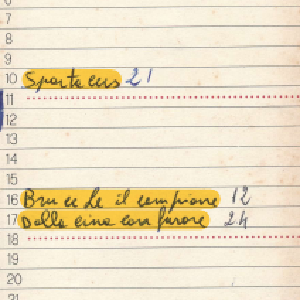 7
8
9
10 Spartacus 21
11
12
13
14
15
16 Bruce Le il campione 12
17 Dalla Cina con furore 24
18
19
20
21